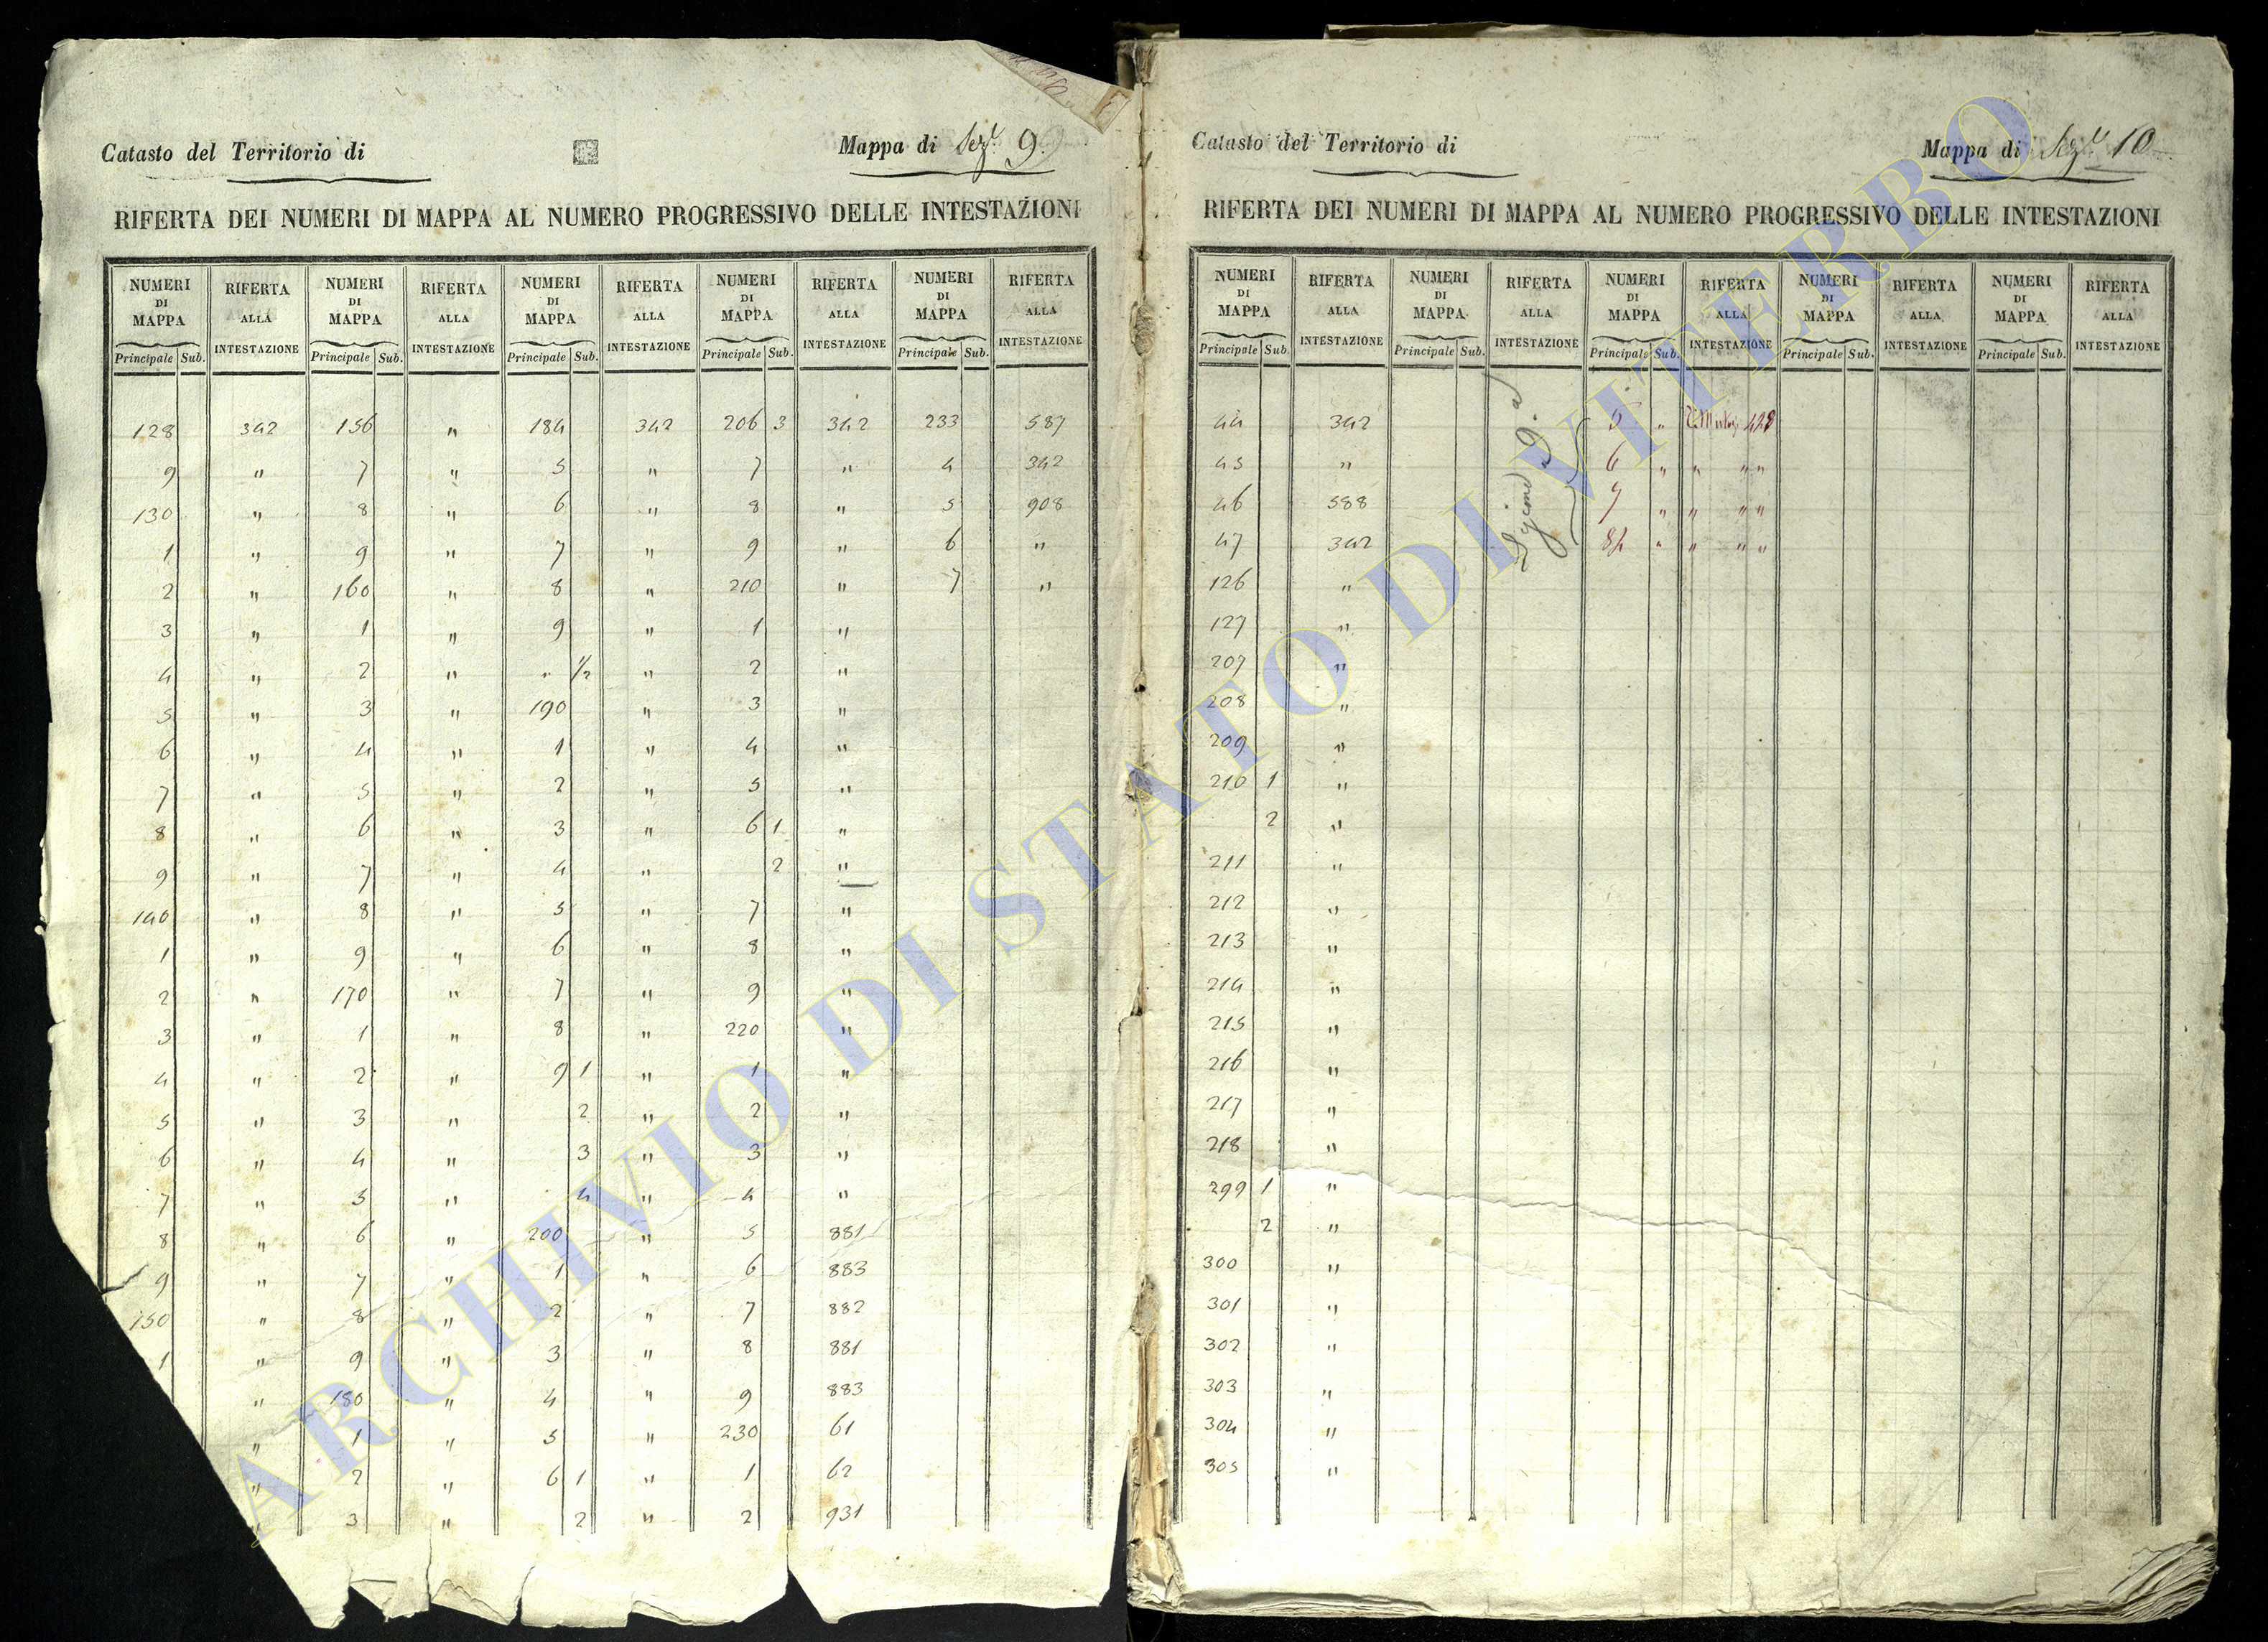 Catasto del Territorio di
Mappa di Sez.e 9.
RIFERTA DEI NUMERI DI MAPPA AL NUMERO PROGRESSIVO DELLE INTESTAZIONI
NUMERI DI MAPPA RIFERTA ALLA INTESTAZIONE NUMERI DI MAPPA RIFERTA ALLA INTESTAZIONE NUMERI DI MAPPA RIFERTA ALLA INTESTAZIONE NUMERI DI MAPPA RIFERTA ALLA INTESTAZIONE NUMERI DI MAPPA RIFERTA ALLA INTESTAZIONE
Principale Sub. Principale Sub. Principale Sub. Principale Sub. Principale Sub.
128 342 156 " 184 342 206 3 342 233 587
9 " 7 " 5 " 7 " 4 342
130 " 8 " 6 " 8 " 5 908
1 " 9 " 7 " 9 " 6 "
2 " 160 " 8 " 210 " 7 "
3 " 1 " 9 " 1 "
4 " 2 " " 1/2 " 2 "
5 " 3 " 190 " 3 "
6 " 4 " 1 " 4 "
7 " 5 " 2 " 5 "
8 " 6 " 3 " 6 1 "
9 " 7 " 4 " 2 "
140 " 8 " 5 " 7 "
1 " 9 " 6 " 8 "
2 " 170 " 7 " 9 "
3 " 1 " 8 " 220 "
4 " 2 " 9 1 " 1 "
5 " 3 " 2 " 2 "
6 " 4 " 3 " 3 "
7 " 5 " 4 " 4 "
8 " 6 " 200 " 5 881
9 " 7 " 1 " 6 883
150 " 8 " 2 " 7 882
1 " 9 " 3 " 8 881
" 180 " 4 " 9 883
" 1 " 5 " 230 61
" 2 " 6 1 " 1 62
" 3 " 2 " 2 931
Catasto del Territorio di
Mappa di Sez.e 10
RIFERTA DEI NUMERI DI MAPPA AL NUMERO PROGRESSIVO DELLE INTESTAZIONI
NUMERI DI MAPPA RIFERTA ALLA INTESTAZIONE NUMERI DI MAPPA RIFERTA ALLA INTESTAZIONE NUMERI DI MAPPA RIFERTA ALLA INTESTAZIONE NUMERI DI MAPPA RIFERTA ALLA INTESTAZIONE NUMERI DI MAPPA RIFERTA ALLA INTESTAZIONE
Principale Sub. Principale Sub. Principale Sub. Principale Sub. Principale Sub.
44 342 5 " 428
45 " 6 " " " "
46 588 7 " " " "
47 342 84 " " " "
126 "
127 "
207 "
208 "
209 "
210 1 "
2 "
211 "
212 "
213 "
214 "
215 "
216 "
217 "
218 "
299 1 "
2 "
300 "
301 "
302 "
303 "
304 "
305 "
ARCHIVIO DI STATO DI VITERBO